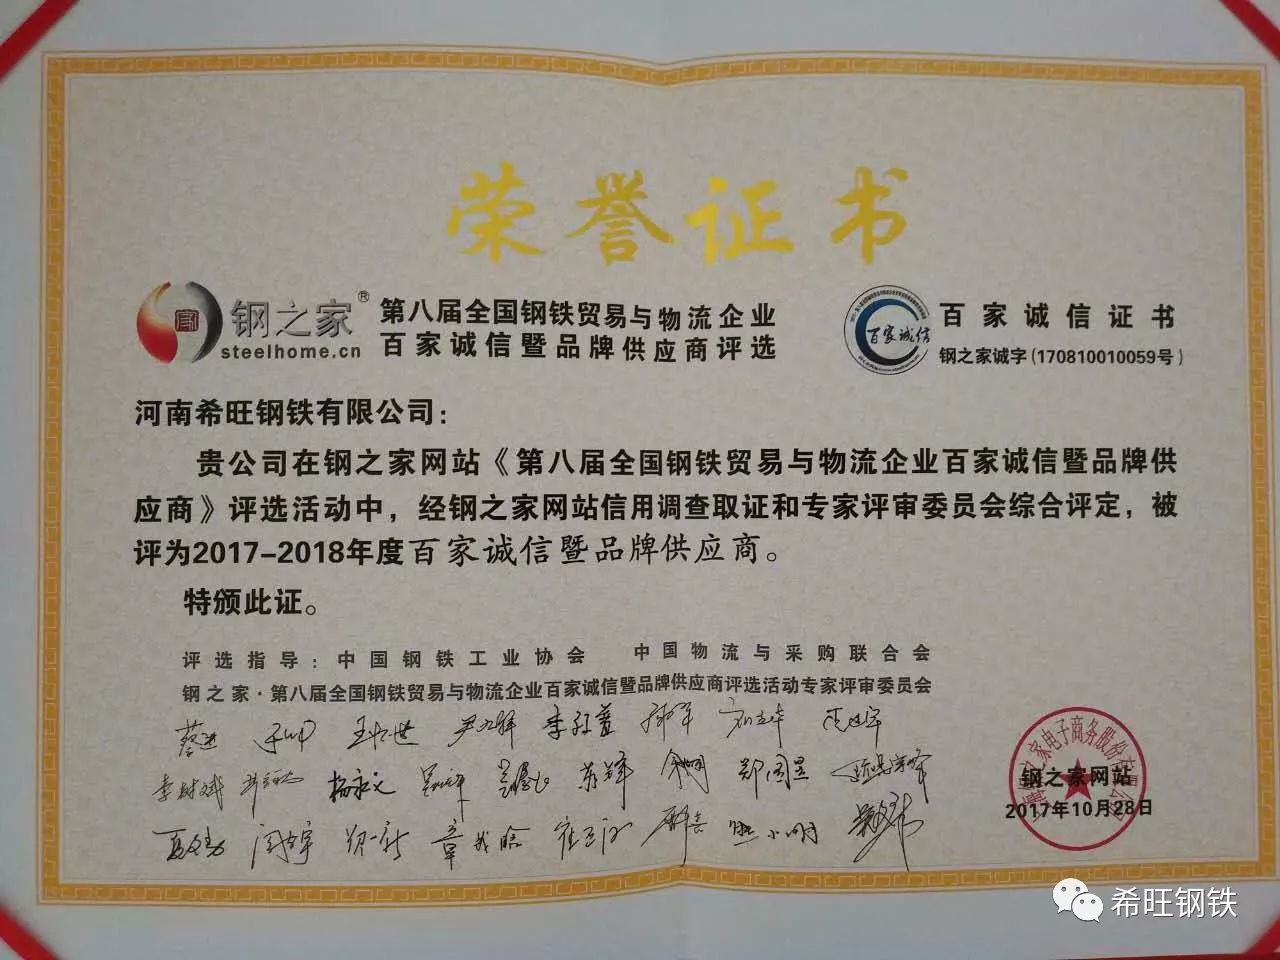 荣誉证书
钢之家®
steelhome.cn
第八届全国钢铁贸易与物流企业
百家诚信暨品牌供应商评选
百家诚信
百家诚信证书
钢之家诚字(170810010059号)
河南希旺钢铁有限公司：
贵公司在钢之家网站《第八届全国钢铁贸易与物流企业百家诚信暨品牌供
应商》评选活动中，经钢之家网站信用调查取证和专家评审委员会综合评定，被
评为2017-2018年度百家诚信暨品牌供应商。
特颁此证。
评选指导：中国钢铁工业协会 中国物流与采购联合会
钢之家·第八届全国钢铁贸易与物流企业百家诚信暨品牌供应商评选活动专家评审委员会
蔡进
李树斌
杨永义
郑国昱
钢之家网站
2017年10月28日
希旺钢铁